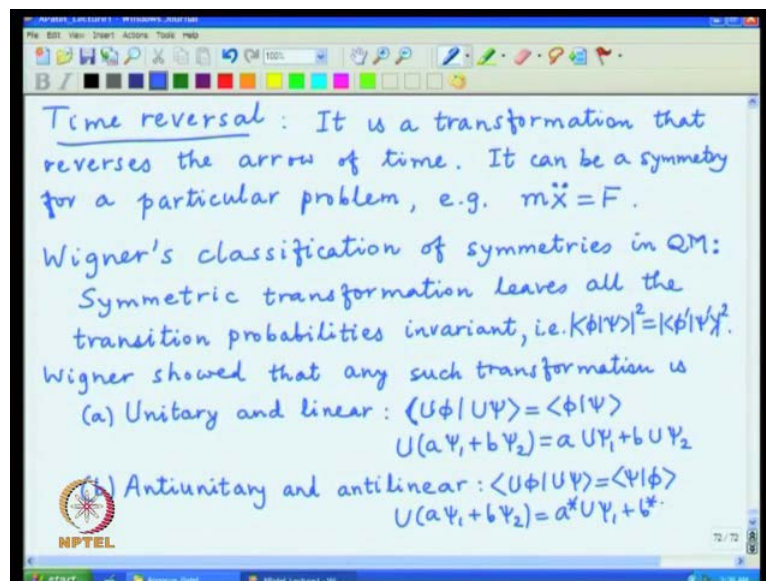 APatel_Lecture1 - Windows Journal
File Edit View Insert Actions Tools Help
100%
B I
Time reversal : It is a transformation that
reverses the arrow of time. It can be a symmetry
for a particular problem, e.g. mẍ = F.
Wigner's classification of symmetries in QM:
Symmetric transformation leaves all the
transition probabilities invariant, i.e. |<φ|ψ>|²=|<φ'|ψ'>|².
Wigner showed that any such transformation is
(a) Unitary and linear : <Uφ|Uψ> = <φ|ψ>
U(aψ₁+bψ₂)=a Uψ₁+b Uψ₂
(b) Antiunitary and antilinear : <Uφ|Uψ>=<ψ|φ>
U(aψ₁+bψ₂)= a*Uψ₁+b*
NPTEL
72 / 72
start